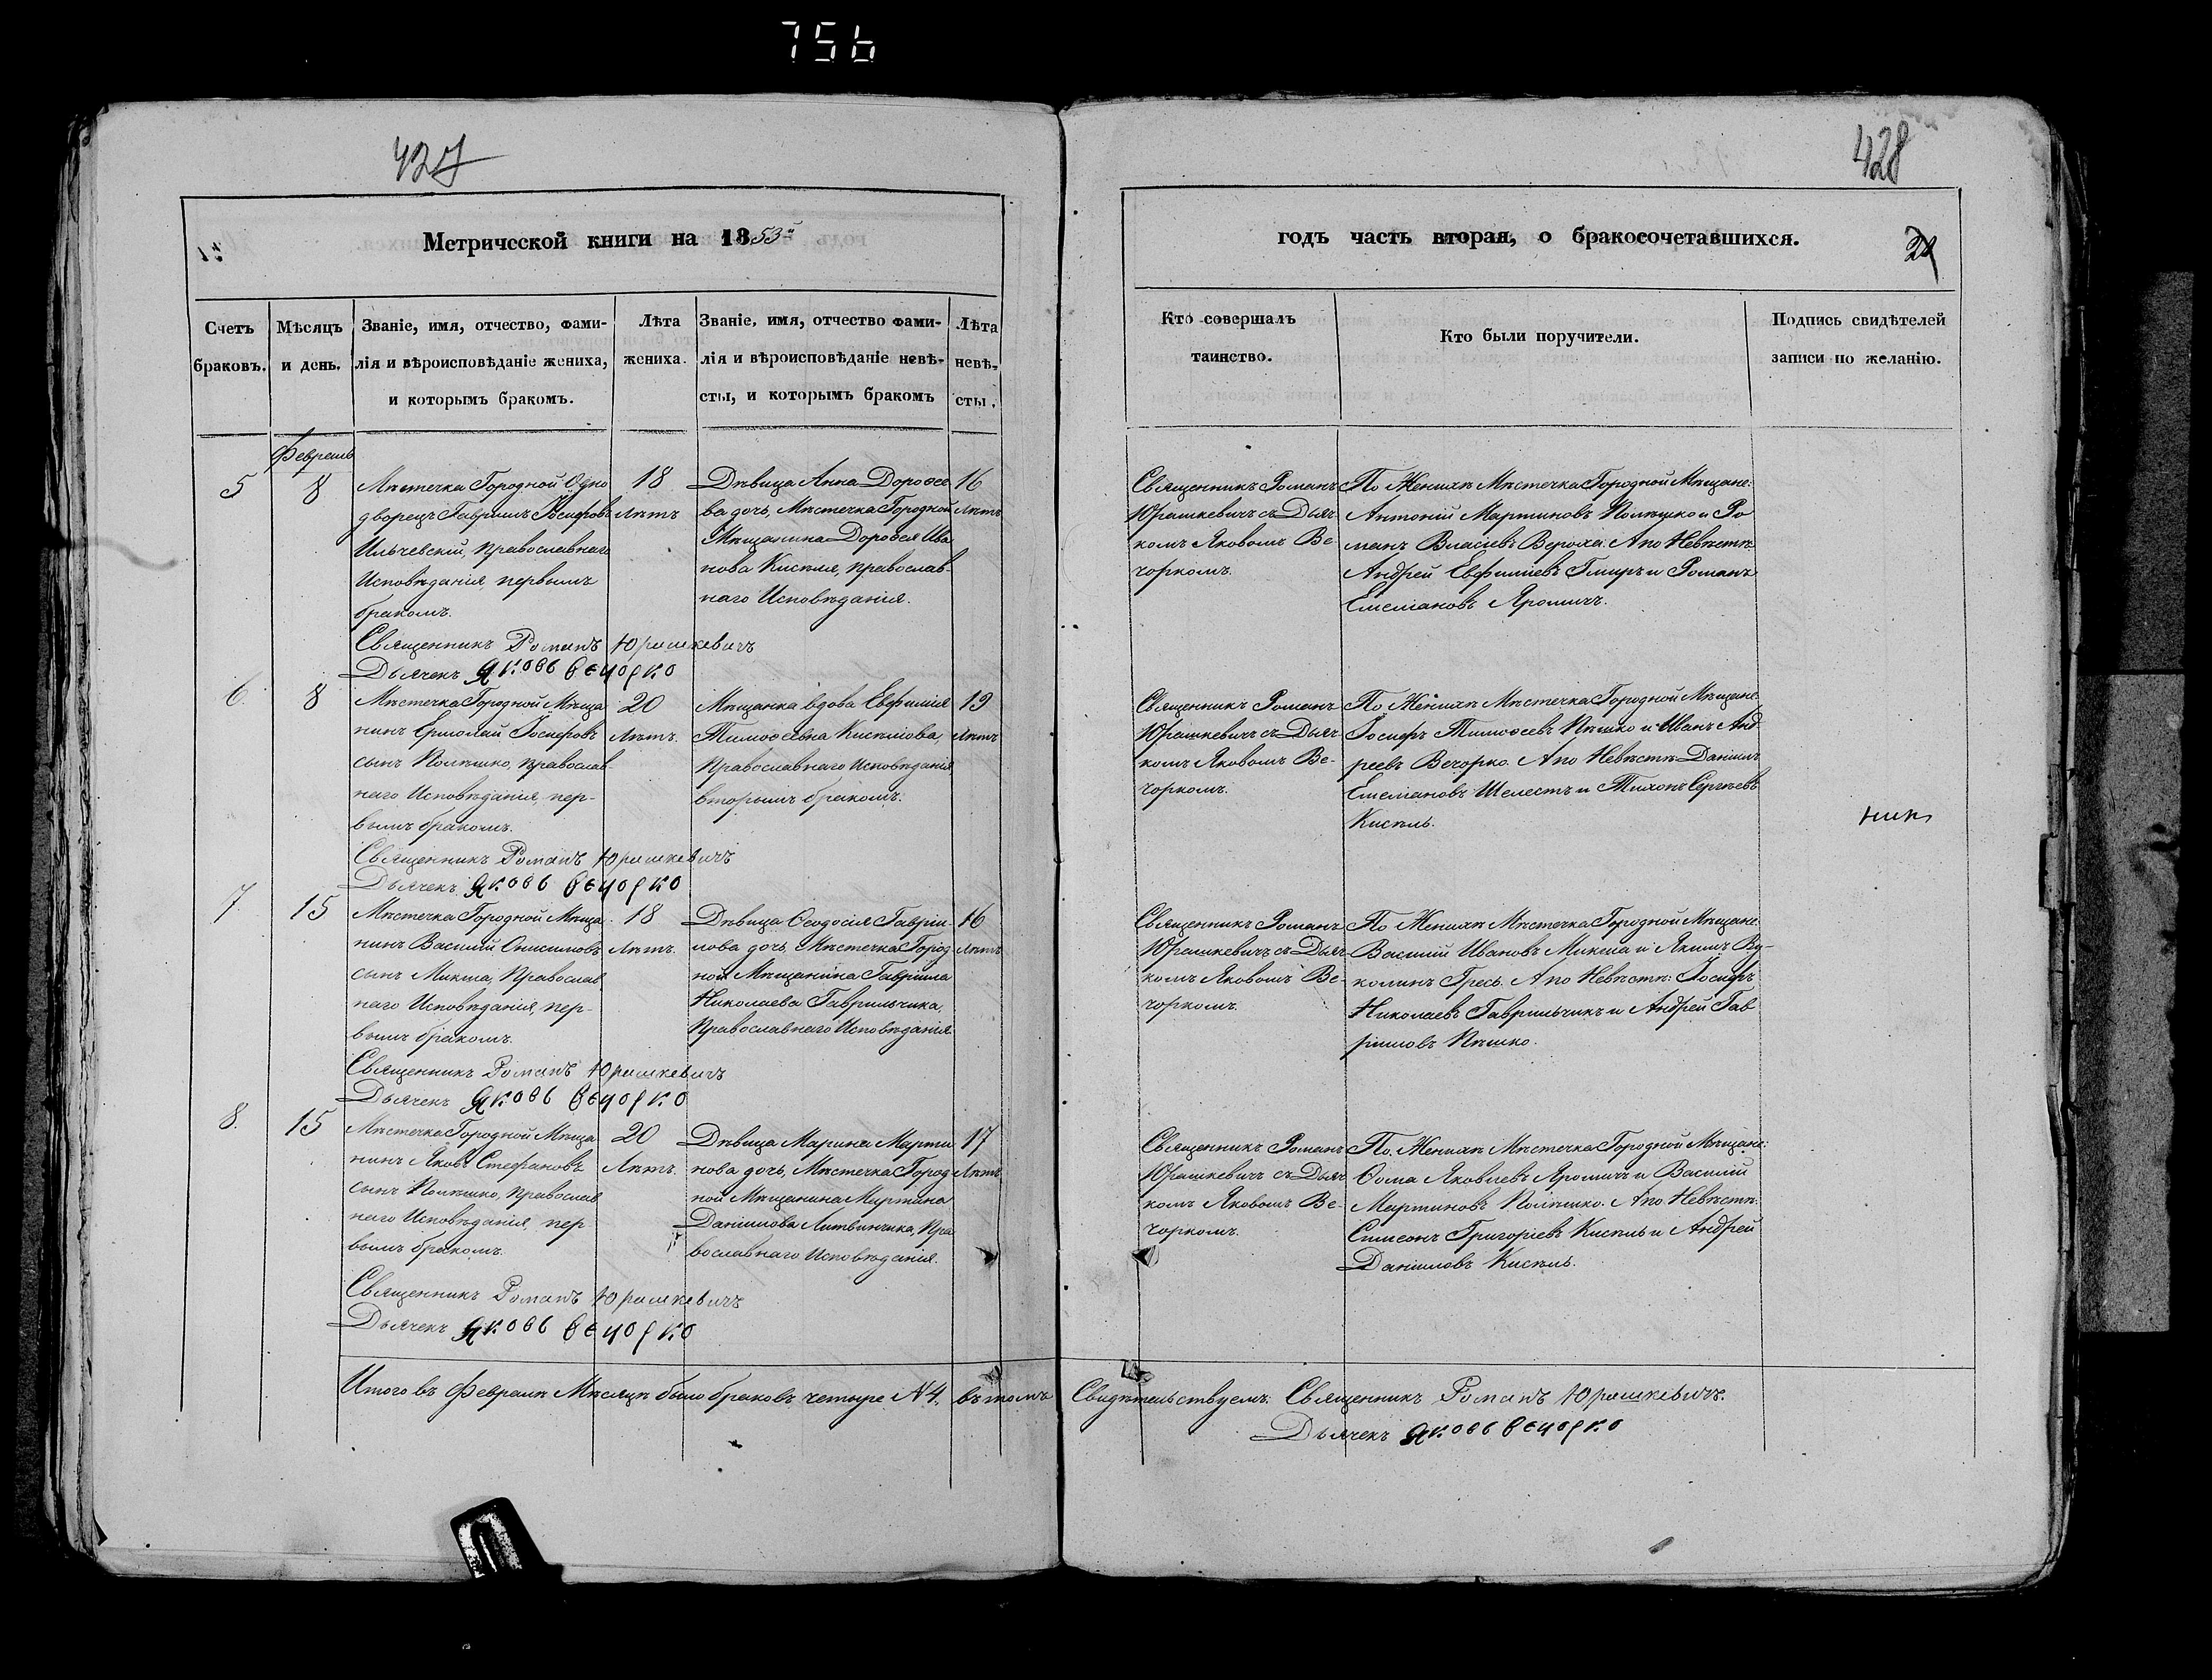 756
427
428
Метрической книги на 1853й
годъ часть вторая, о бракосочетавшихся.
Счетъ
браковъ.
Мѣсяцъ
и день.
Званіе, имя, отчество, фами-
лія и вѣроисповѣданіе жениха,
и которымъ бракомъ.
Лѣта
жениха.
Званіе, имя, отчество фами-
лія и вѣроисповѣданіе невѣ-
сты, и которымъ бракомъ
Лѣта
невѣ-
сты.
Кто совершалъ
таинство.
Кто были поручители.
Подпись свидѣтелей
записи по желанію.
Февраль
5
8
Мѣстечка Городной Одно
дворецъ Гавріилъ Іосифовъ
Ильчевскій, православнаго
Исповѣданія, первымъ
бракомъ.
18
Лѣтъ
Дѣвица Анна Дороѳее
ва дочь, Мѣстечка Городной
Мѣщанина Дороѳея Ива
нова Кисѣля, православ-
наго Исповѣданія.
16
Лѣтъ
Священникъ Романъ
Юрашкевичъ съ Дьяч
комъ Яковомъ Ве-
чоркомъ.
По Женихѣ Мѣстечка Городной Мѣщане:
Антоній Мартиновъ Полѣшко и Ро
манъ Власіевъ Вероха. А по Невѣстѣ
Андрей Евфиміевъ Гмиръ и Романъ
Емеліановъ Яромичъ.
Священникъ Романъ Юрашкевичъ
Дьячекъ Яковъ Вечорко
6.
8
Мѣстечка Городной Мѣща
нинъ Ермолай Іосифовъ
сынъ Полѣшко, православ-
наго Исповѣданія, пер-
вымъ бракомъ.
20
Лѣтъ.
Мѣщанка вдова Евфимія
Тимоѳеевна Кисѣлова,
Православнаго Исповѣданія
вторымъ бракомъ.
19
Лѣтъ
Священникъ Романъ
Юрашкевичъ съ Дьяч
комъ Яковомъ Ве-
чоркомъ.
По Женихѣ Мѣстечка Городной Мѣщане:
Іосифъ Тимоѳеевъ Пѣшко и Иванъ Анд
реевъ Вечорко. А по Невѣстѣ Даніилъ
Емеліановъ Шелестъ и Тихонъ Сергѣевъ
Кисѣль.
Священникъ Романъ Юрашкевичъ
Дьячекъ Яковъ Вечорко
7.
15
Мѣстечка Городной Мѣща
нинъ Василій Онисимовъ
сынъ Микша, Православ
наго Исповѣданія, пер-
вымъ бракомъ.
18
Лѣтъ.
Дѣвица Ѳеодосія Гавріи-
лова дочь, Мѣстечка Город
ной Мѣщанина Гавріила
Николаева Гаврильчика,
Православнаго Исповѣданія
16
Лѣтъ
Священникъ Романъ
Юрашкевичъ съ Дьяч
комъ Яковомъ Ве-
чоркомъ.
По Женихѣ Мѣстечка Городной Мѣщане:
Василій Ивановъ Микша и Якимъ Ву-
колинъ Гресь. А по Невѣстѣ: Іосифъ
Николаевъ Гаврильчикъ и Андрей Гав
ріиловъ Пѣшко.
Священникъ Романъ Юрашкевичъ
Дьячекъ Яковъ Вечорко
8.
15
Мѣстечка Городной Мѣща
нинъ Яковъ Стефановъ
сынъ Полѣшко, православ
наго Исповѣданія, пер
вымъ бракомъ.
20
Лѣтъ.
Дѣвица Марина Марти
нова дочь, Мѣстечка Город
ной Мѣщанина Мартина
Даніилова Литвинчика, Пра
вославнаго Исповѣданія.
17
Лѣтъ
Священникъ Романъ
Юрашкевичъ съ Дьяч
комъ Яковомъ Ве-
чоркомъ.
По Женихѣ Мѣстечка Городной Мѣщане:
Ѳома Яковлевъ Яромичъ и Василій
Мартиновъ Полѣшко. А по Невѣстѣ:
Симеонъ Григоріевъ Кисѣль и Андрей
Даніиловъ Кисѣль.
Священникъ Романъ Юрашкевичъ
Дьячекъ Яковъ Вечорко
Итого въ Февралѣ Мѣсяцѣ было браковъ четыре №4. въ томъ Свидѣтельствуемъ. Священникъ Романъ Юрашкевичъ.
Дьячекъ Яковъ Вечорко